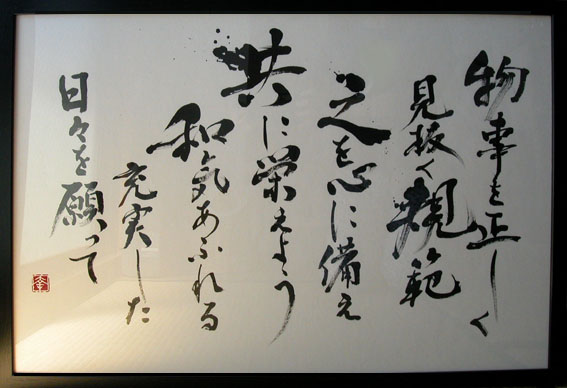 物事を正しく
見抜く規範
之を心に備え
共に栄えよう
和気あふれる
充実した
日々を願って
幸